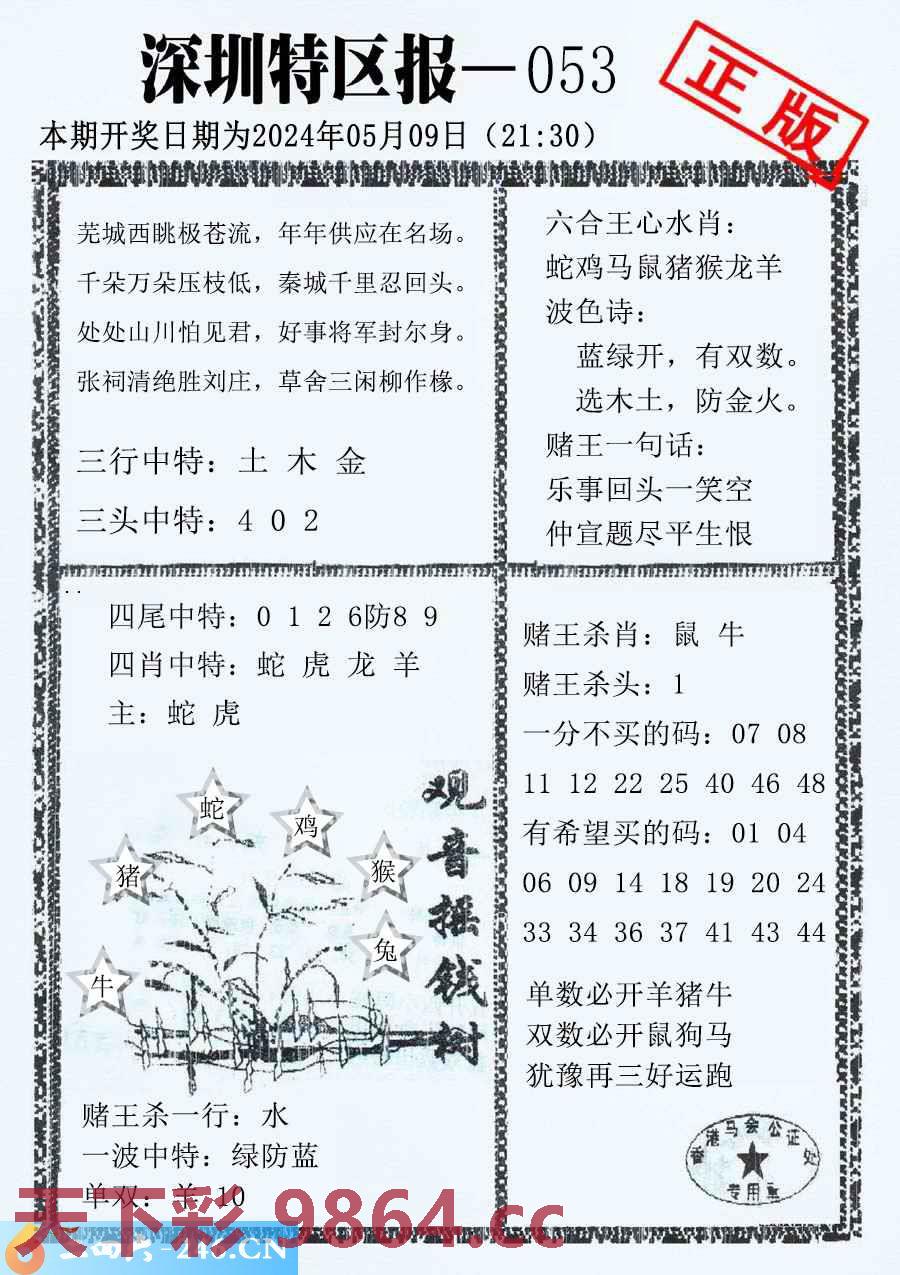 深圳特区报—053
正版
本期开奖日期为2024年05月09日（21:30）
芜城西眺极苍流，年年供应在名场。
千朵万朵压枝低，秦城千里忍回头。
处处山川怕见君，好事将军封尔身。
张祠清绝胜刘庄，草舍三闲柳作椽。
三行中特：土 木 金
三头中特：4 0 2
六合王心水肖：
蛇鸡马鼠猪猴龙羊
波色诗：
蓝绿开，有双数。
选木土，防金火。
赌王一句话：
乐事回头一笑空
仲宣题尽平生恨
四尾中特：0 1 2 6防8 9
四肖中特：蛇 虎 龙 羊
主：蛇 虎
蛇
鸡
猪
猴
兔
牛
观音摇钱树
赌王杀一行：水
一波中特：绿防蓝
单双：羊 10
赌王杀肖：鼠 牛
赌王杀头：1
一分不买的码：07 08
11 12 22 25 40 46 48
有希望买的码：01 04
06 09 14 18 19 20 24
33 34 36 37 41 43 44
单数必开羊猪牛
双数必开鼠狗马
犹豫再三好运跑
香港马会公证处
专用章
天下彩 9864.cc
-246.CN